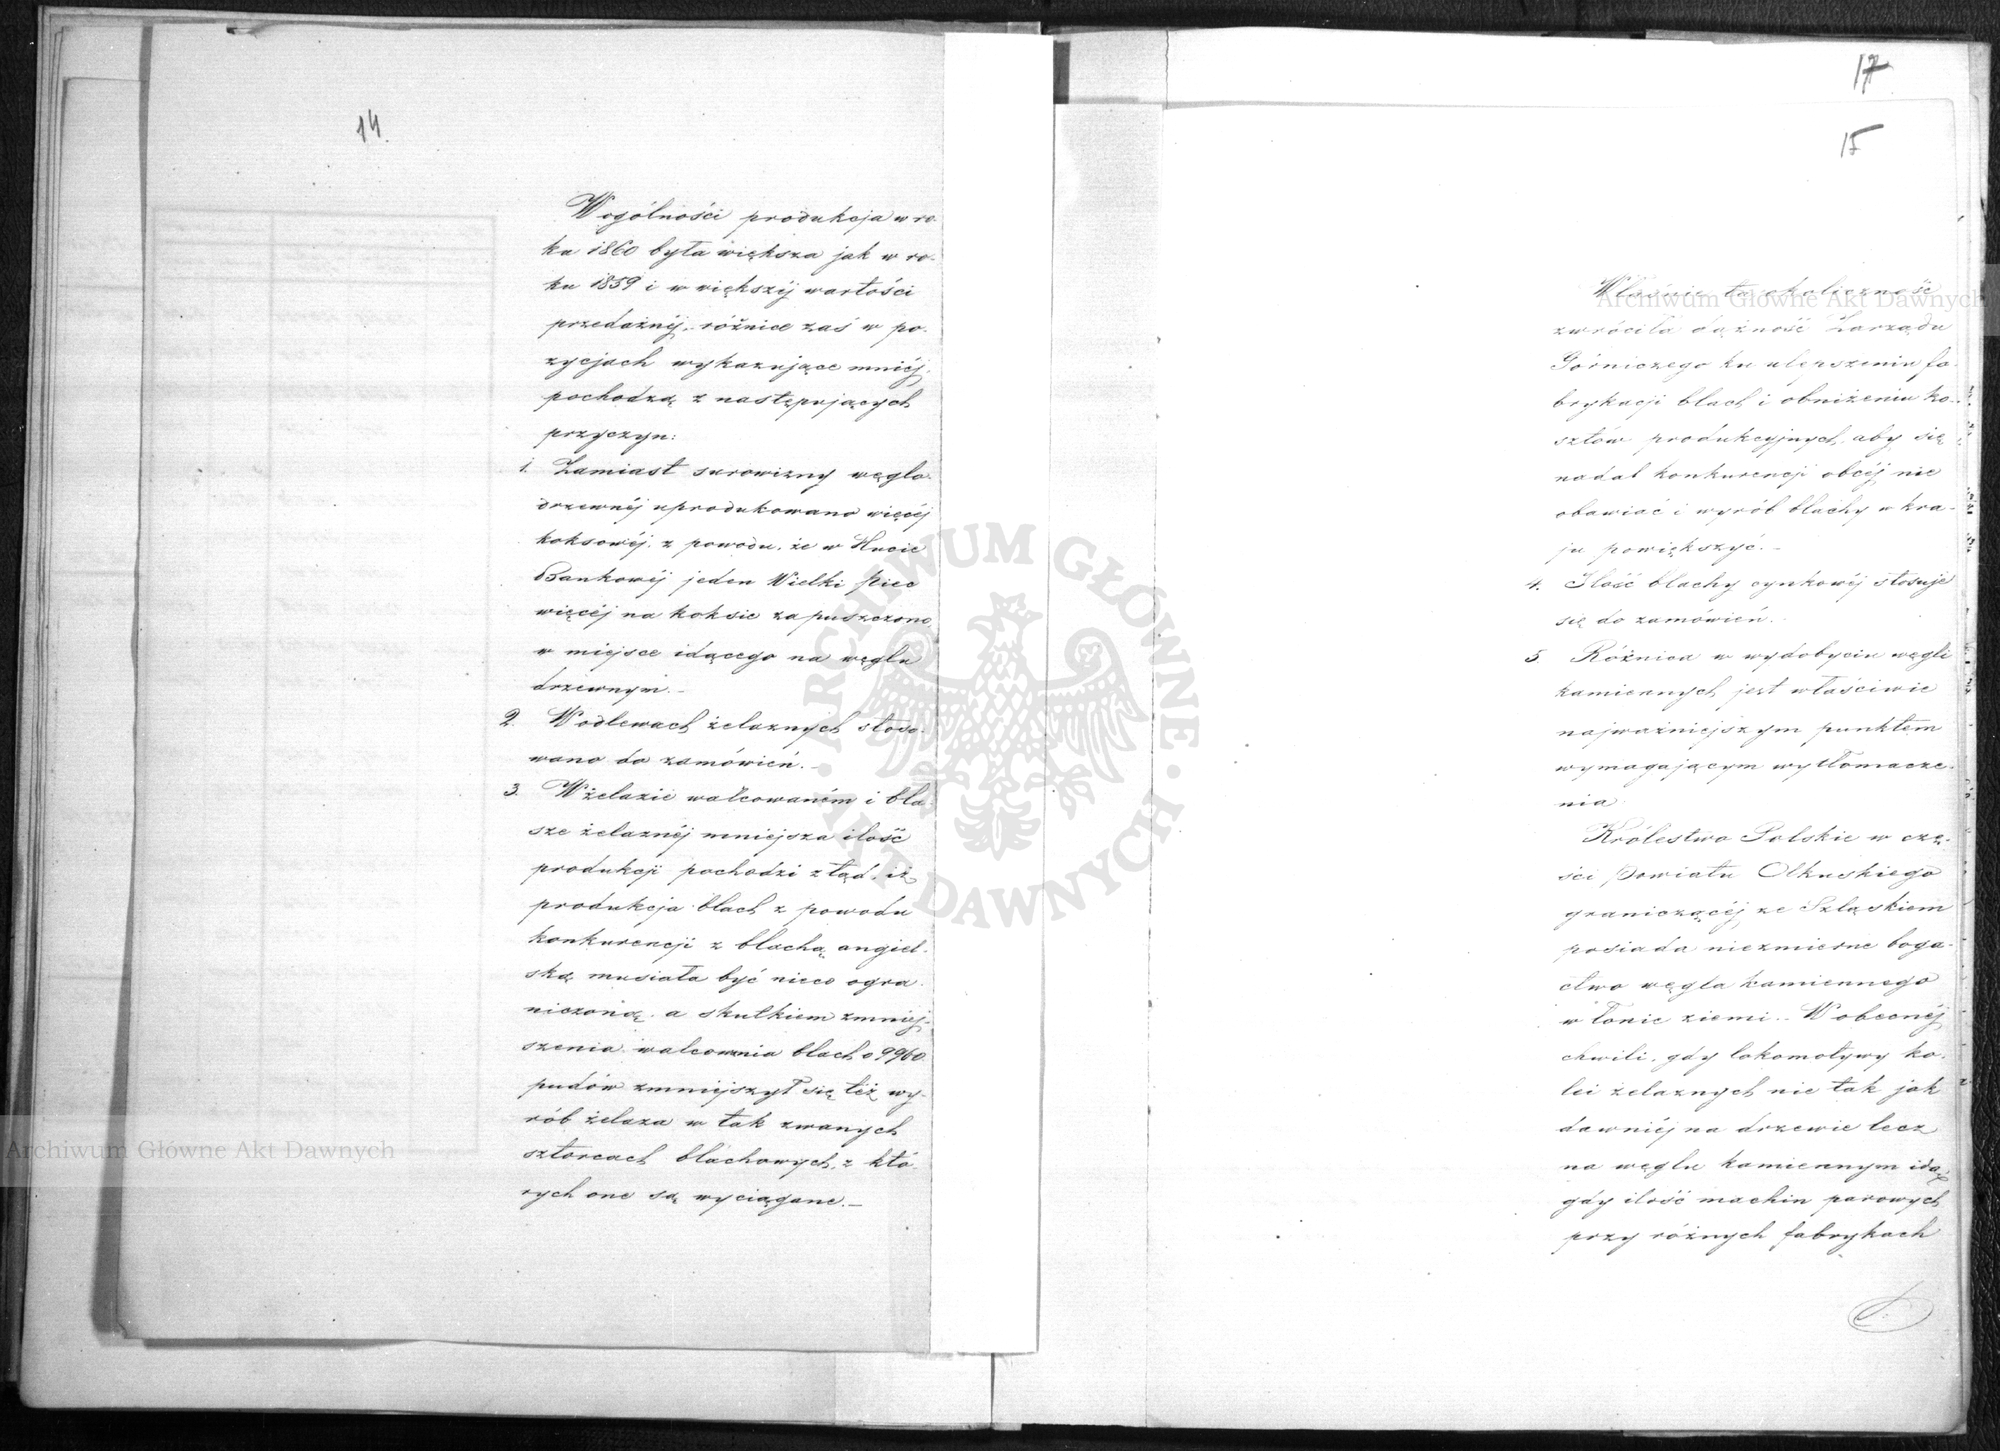 14.
Wogólności produkcja w ro-
ku 1860 była większa jak w ro-
ku 1859 i w większéj wartości
przedażnéj, różnice zaś w po-
zycjach wykazujące mniéj,
pochodzą z następujących
przyczyn:
1. Zamiast surowizny węglo-
drzewnéj uprodukowano więcéj
koksowéj, z powodu, że w Hucie
Bankowéj jeden Wielki Piec
więcéj na koksie zapuszczono,
w miejsce idącego na węglu
drzewnym. –
2. W odlewach żelaznych stoso-
wano do zamówień. –
3. W żelazie walcowaném i bla-
sze żelaznéj mniejsza ilość
produkcji pochodzi ztąd, iż
produkcja blach z powodu
konkurencji z blachą angiel-
ską musiała być nieco ogra-
niczoną, a skutkiem zmniej-
szenia walcownia blach o 9960
pudów zmniejszył się też wy-
rób żelaza w tak zwanych
sztorcach blachowych, z któ-
rych one są wyciągane. –
17
15
Właśnie ta okoliczność
zwróciła dążność Zarządu
Górniczego ku ulepszeniu fa-
brykacji blach i obniżeniu ko-
sztów produkcyjnych, aby się
nadal konkurencji obcéj nie
obawiać i wyrób blachy w kra-
ju powiększyć. –
4. Ilość blachy cynkowéj stosuje
się do zamówień.
5. Różnica w wydobyciu węgli
kamiennych jest właściwie
najważniejszym punktem
wymagającym wytłomacze-
nia.
Królestwo Polskie w czę-
ści Powiatu Olkuskiego
graniczącéj ze Szląskiem
posiada niezmierne boga-
ctwo węgla kamiennego
w łonie ziemi. – W obecnéj
chwili, gdy lokomotywy ko-
lei żelaznych nie tak jak
dawniéj na drzewie lecz
na węglu kamiennym idą,
gdy ilość machin parowych
przy różnych fabrykach
Archiwum Główne Akt Dawnych
Archiwum Główne Akt Dawnych
· ARCHIWUM GŁÓWNE · AKT DAWNYCH